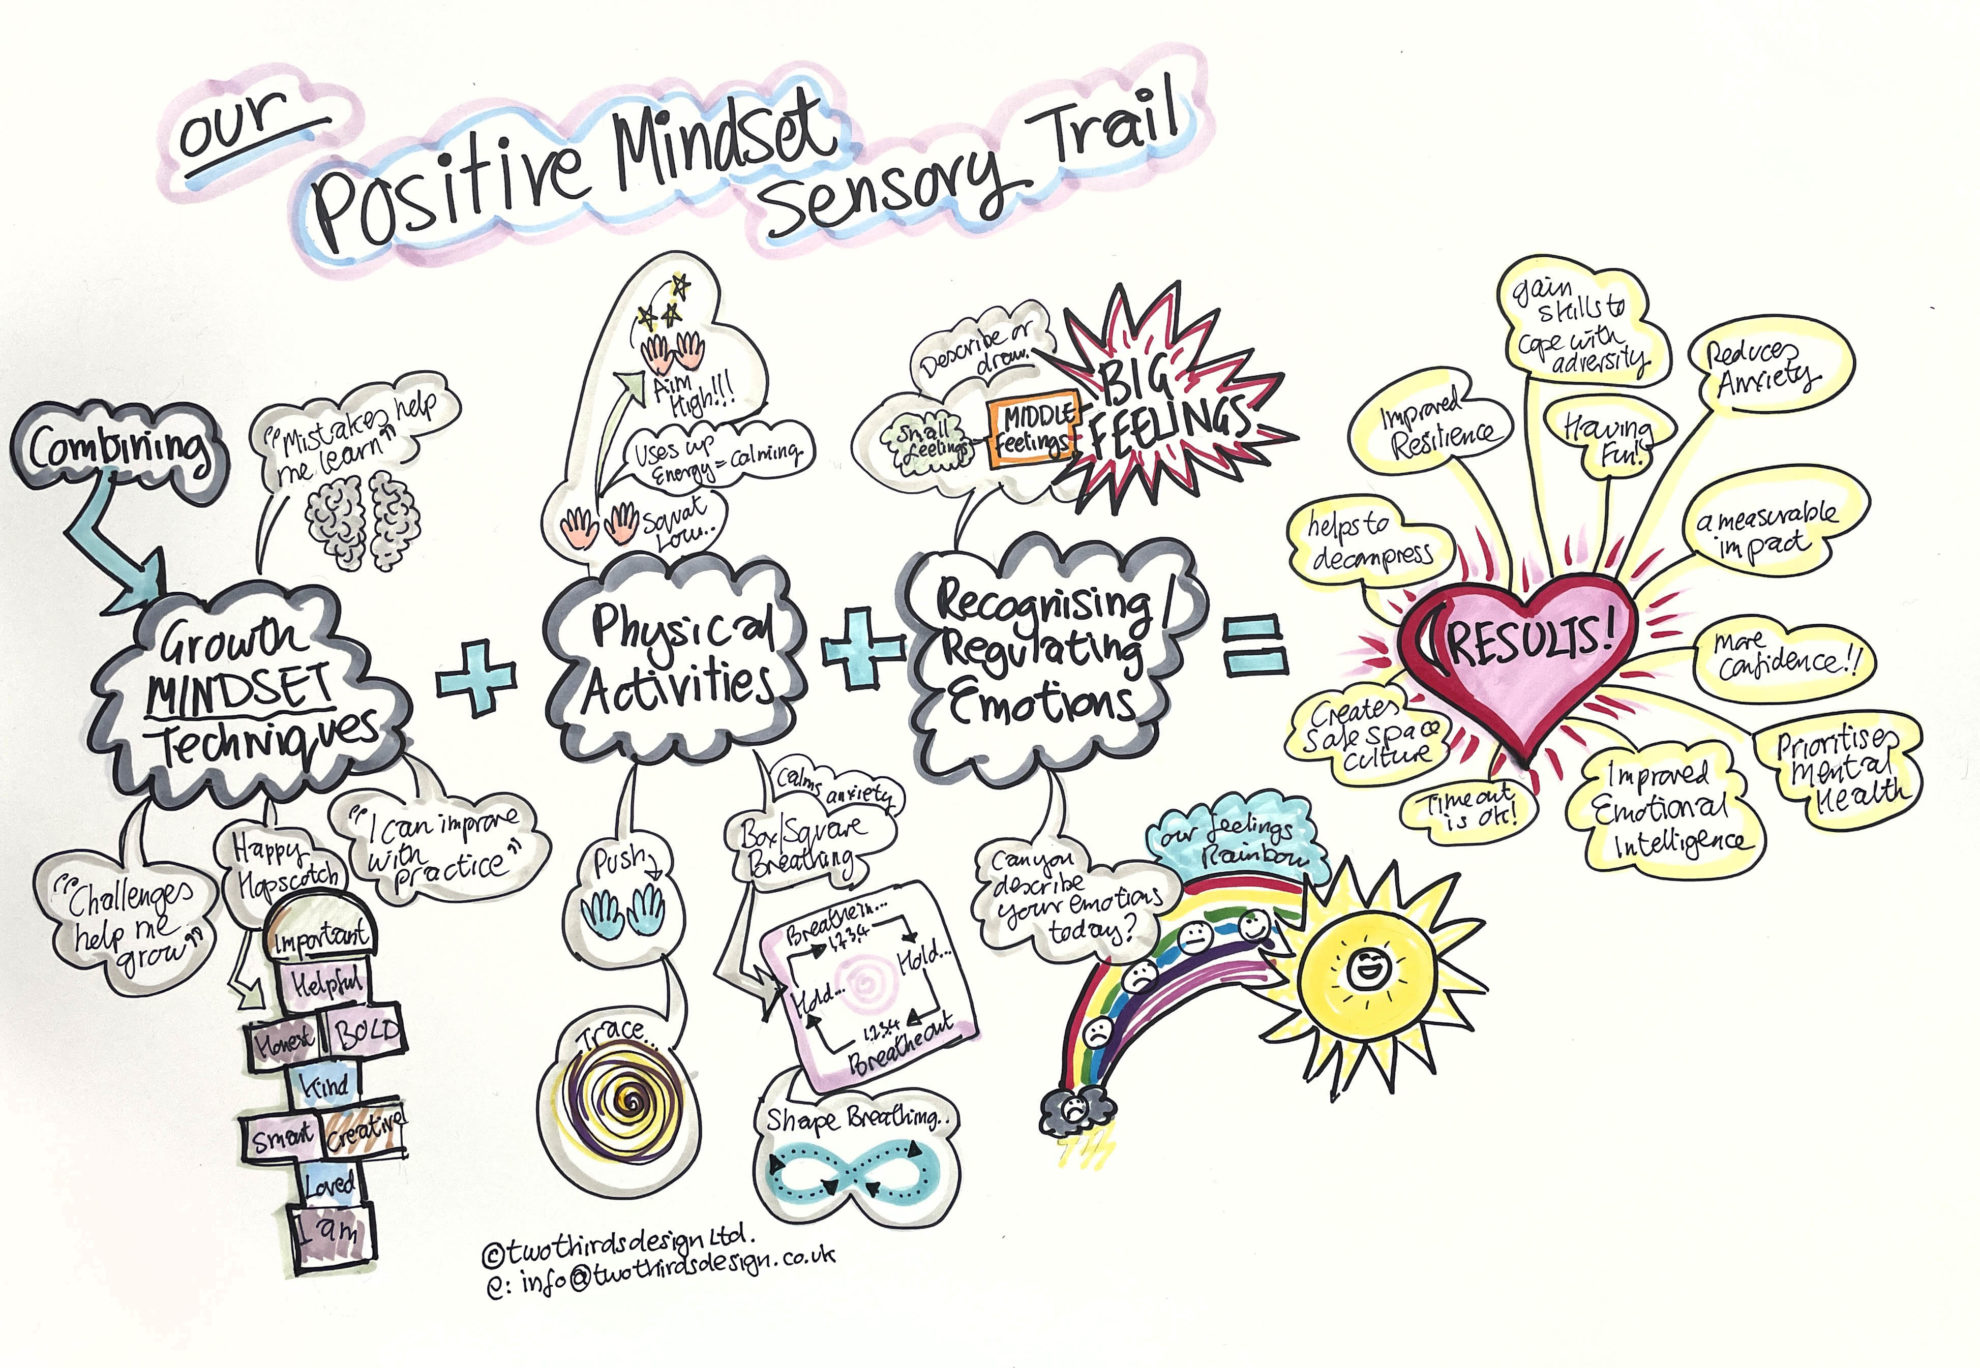 our
Positive Mindset
Sensory Trail
Combining
"Mistakes help
me learn"
Growth
MINDSET
Techniques
"Challenges
help me
grow"
Happy
Hopscotch
"I can improve
with
practice"
Important
Helpful
Honest
BOLD
Kind
Smart
Creative
Loved
I am
+
Aim
High!!!
Uses up
Energy = Calming
Squat
Low..
Physical
Activities
Push
Trace...
Calms anxiety
Box/Square
Breathing
Breathe in...
1,2,3,4
Hold...
Hold...
1,2,3,4
Breathe out
Shape Breathing..
+
Describe or
draw.
Small
feelings
MIDDLE
Feelings
BIG
FEELINGS
Recognising/
Regulating
Emotions
Can you
describe
your emotions
today?
our feelings
Rainbow
=
RESULTS!
helps to
decompress
Improved
Resilience
gain
skills to
cope with
adversity
Having
Fun!
Reduces
Anxiety
a measurable
impact
More
confidence!!
Prioritises
Mental
Health
Improved
Emotional
Intelligence
Time out
is ok!
Creates
Safe space
culture
©twothirdsdesign Ltd.
e: info@twothirdsdesign.co.uk